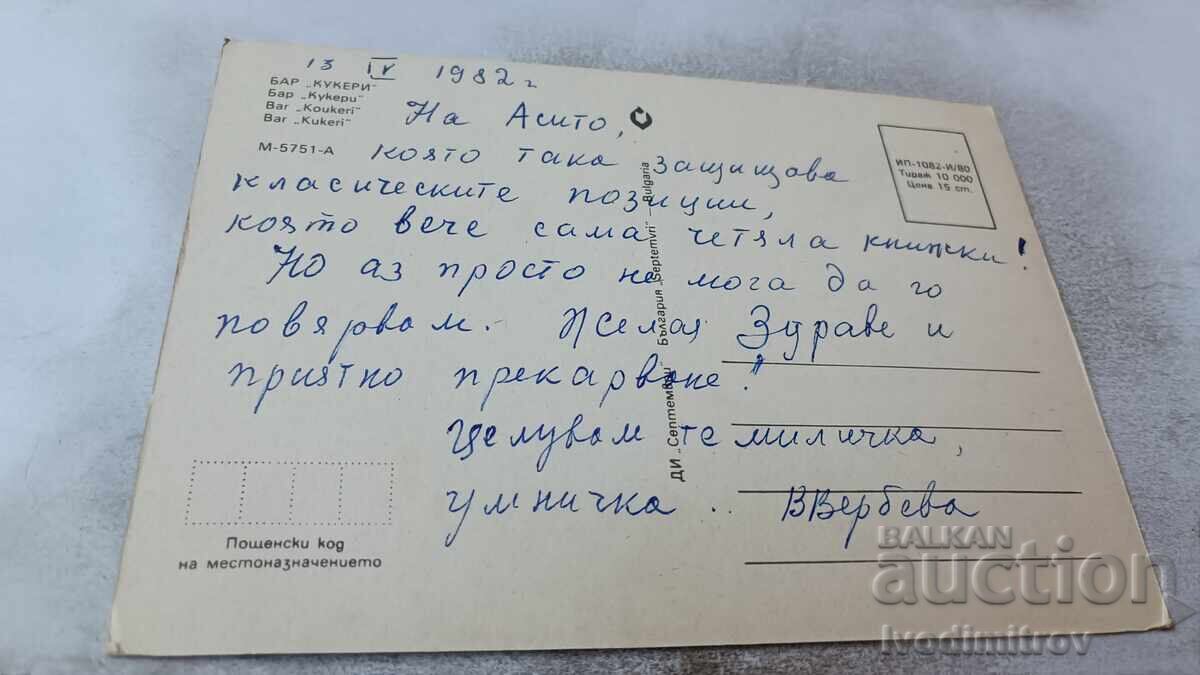 13 IV 1982 г
БАР „КУКЕРИ"
Бар „Кукери"
Bar „Koukeri"
Bar „Kukeri"
М-5751-А
На Асито,
която така защищава
класическите позиции,
която вече сама четяла книжки!
Но аз просто не мога да го
повярвам. Желая Здраве и
приятно прекарване!
Целувам те миличка,
умничка .. ВВербева
ИП-1082-И/80
Тираж 10 000
Цена 15 ст.
ДИ „Септември" България „Septemvri" — Bulgaria
Пощенски код
на местоназначението
BALKAN
auction
Ivodimitrov